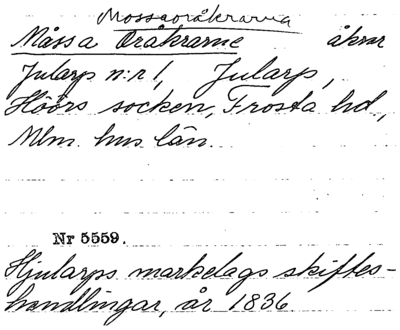 Mossaoråkrarna
Måssa Oråkrarne åkrar
Jularp n:r 1, Jularp,
Höörs socken, Frosta hd,
Mlm. hus län.
Nr 5559.
Hjularps markelags skiftes-
handlingar, år 1836